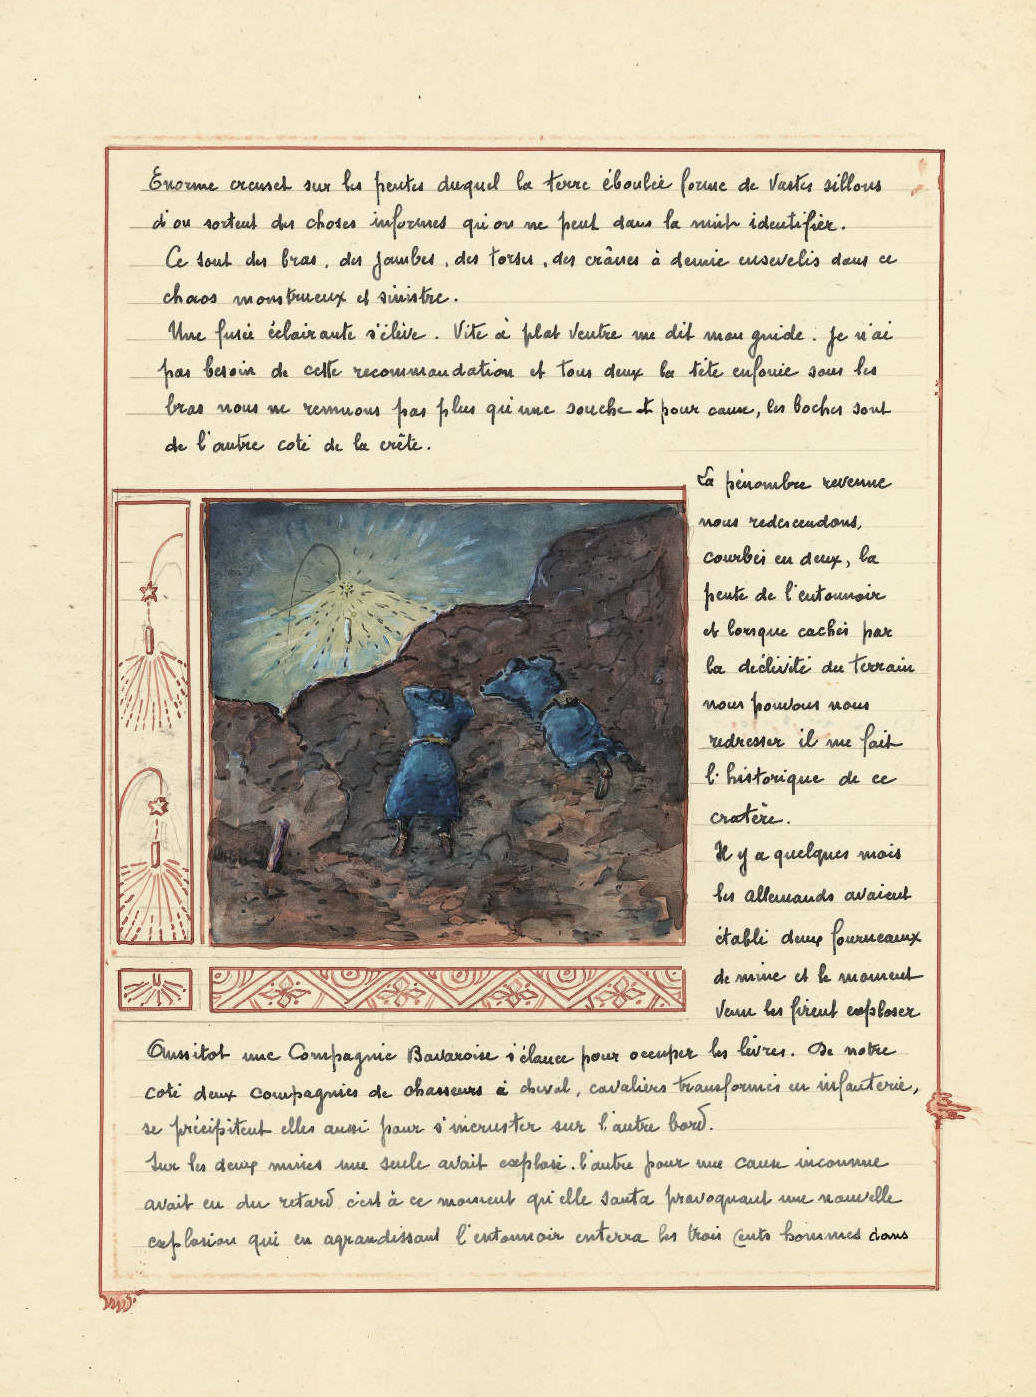 Enorme creuset sur les pentes duquel la terre éboulée forme de vastes sillons
d'ou sortent des choses informes qu'on ne peut dans la nuit identifier.
Ce sont des bras, des jambes, des torses, des crânes à demie ensevelis dans ce
chaos monstrueux et sinistre.
Une fusée éclairante s'élève. Vite à plat ventre me dit mon guide. Je n'ai
pas besoin de cette recommandation et tous deux la tête enfouie sous les
bras nous ne remuons pas plus qu'une souche et pour cause, les boches sont
de l'autre coté de la crête.
La pénombre revenue
nous redescendons,
courbés en deux, la
pente de l'entonnoir
et lorsque cachés par
la déclivité du terrain
nous pouvons nous
redresser il me fait
l'historique de ce
cratère.
Il y a quelques mois
les allemands avaient
établi deux fourneaux
de mine et le moment
venu les firent exploser
Aussitot une Compagnie Bavaroise s'élance pour occuper les lèvres. De notre
coté deux compagnies de chasseurs à cheval, cavaliers transformés en infanterie,
se précipitent elles aussi pour s'incruster sur l'autre bord.
Sur les deux mines une seule avait explosé. l'autre pour une cause inconnue
avait eu du retard c'est à ce moment qu'elle sauta provoquant une nouvelle
explosion qui en agrandissant l'entonnoir enterra les trois cents hommes dans